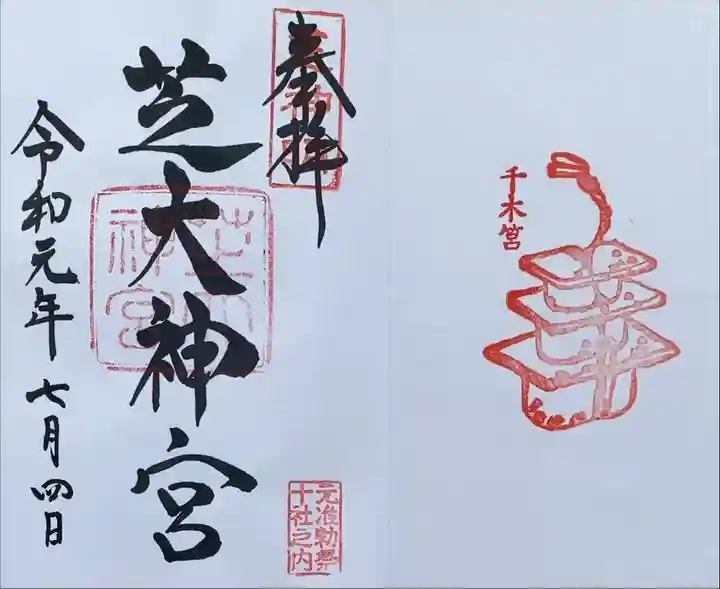 千木筥
奉拝
芝大神宮
芝大
神宮
元准勅祭
十社之内
令和元年七月四日